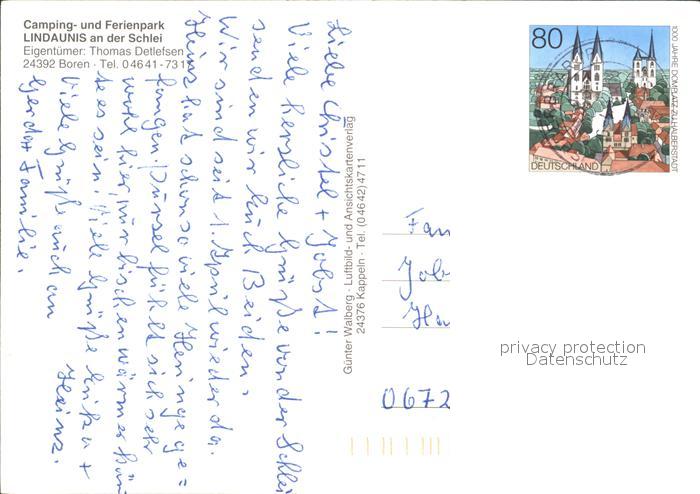 Camping- und Ferienpark
LINDAUNIS an der Schlei
Eigentümer: Thomas Detlefsen
24392 Boren · Tel. 0 46 41 - 73 1
Liebe Christel + Jobst!
Viele herzliche Grüße von der Schlei
senden wir Euch Beiden.
Wir sind seit 1. April wieder da.
Heinz hat schon so viele Heringe ge=
fangen. Pursel fühlt sich sehr
wohl hier, nur bischen wärmer könn
te es sein. Viele Grüße +
Heinz.
Viele Grüße auch an
Gerdas Familie.
Günter Walberg · Luftbild- und Ansichtskartenverlag
24376 Kappeln · Tel. (0 46 42) 47 11
80
DEUTSCHLAND
1000 JAHRE DOMPLATZ ZU HALBERSTADT
Fam
Job
0672
privacy protection
Datenschutz